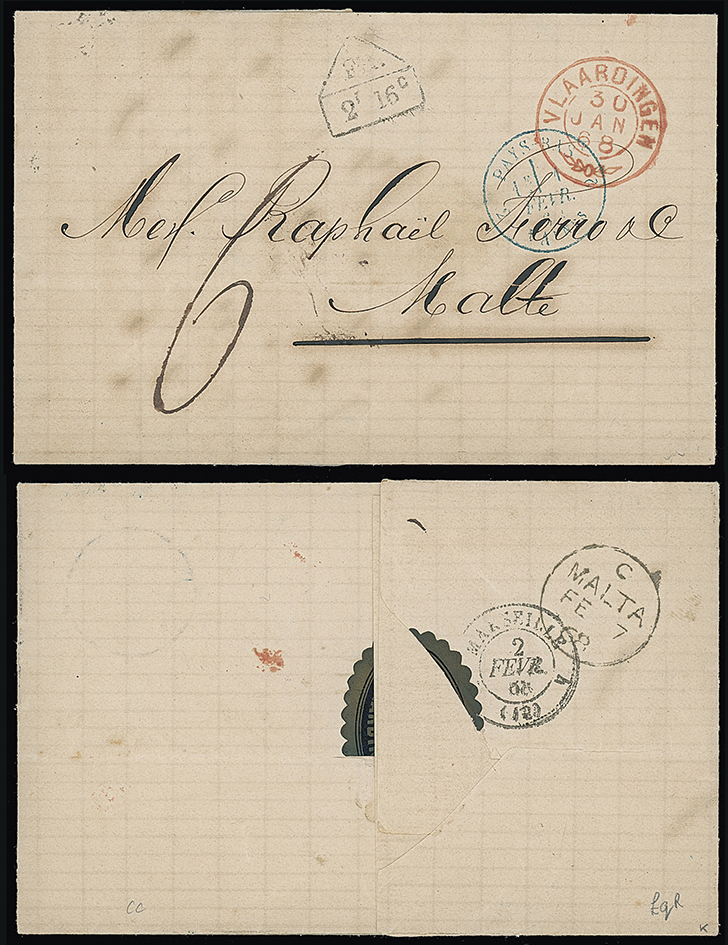 F. 
2f 16c
VLAARDINGEN
30
JAN
68
PAYS-BAS
1
FEVR.
Mess. Raphaël Ferro & C
Malte
6
C
MALTA
FE 7
68
MARSEILLE
2
FEVR.
68
(12)
CC
K